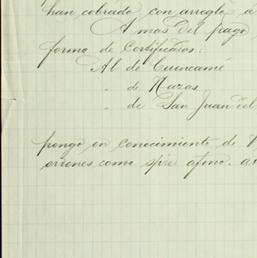 han cobrado con arreglo á
A mas del pago
forma de Certificados:
Al de Cuencamé
" de Nazas
" de San Juan del
pongo en conocimiento de
errores, como spre afmo.